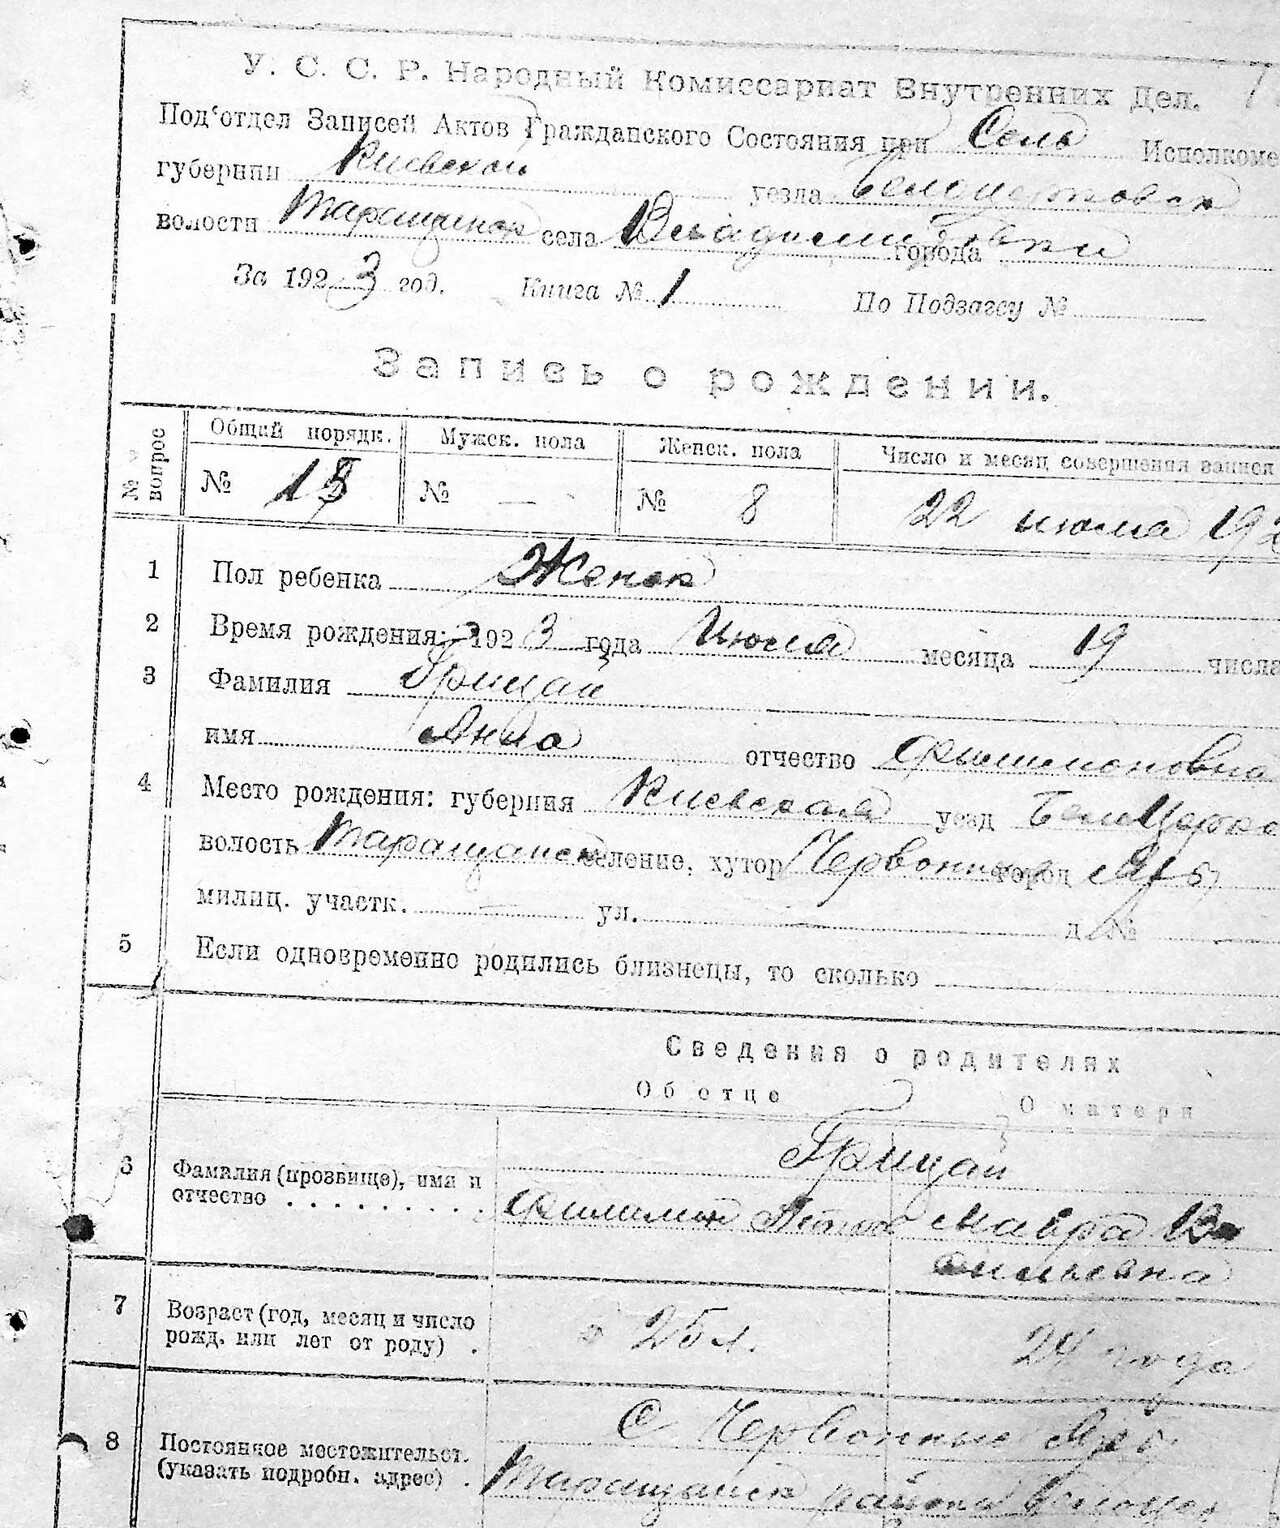 У. С. С. Р. Народный Комиссариат Внутренних Дел.
Под'отдел Записей Актов Гражданского Состояния при Сель Исполкоме
губернии Киевской уезда Белоцерковск
волости Таращанск села Владимировки города
За 1923 год. Книга № 1 По Подзагсу №
Запись о рождении.
№ вопрос
Общий порядк. Мужск. пола Женск. пола Число и месяц совершения записи
№ № — № 8 22 июля 192
1 Пол ребенка Женск
2 Время рождения: 1923 года Июля месяца 19 числа
3 Фамилия Грицай
имя Анна отчество Филимоновна
4 Место рождения: губерния Киевская уезд БелоЦерко
волость Таращанск селение, хутор Червонный город Яръ
милиц. участк. — ул. — д. № —
5 Если одновременно родились близнецы, то сколько
Сведения о родителях
Об отце О матери
Грицай
6 Фамилия (прозвище), имя и
отчество . . . . . . . . . Филимон Петров Мавра Ва
сильевна
7 Возраст (год, месяц и число
рожд. или лет от роду) . 25 л. 24 года
8 Постоянное местожительст.
(указать подробн. адрес) . С Червонный Яръ
Таращанск района